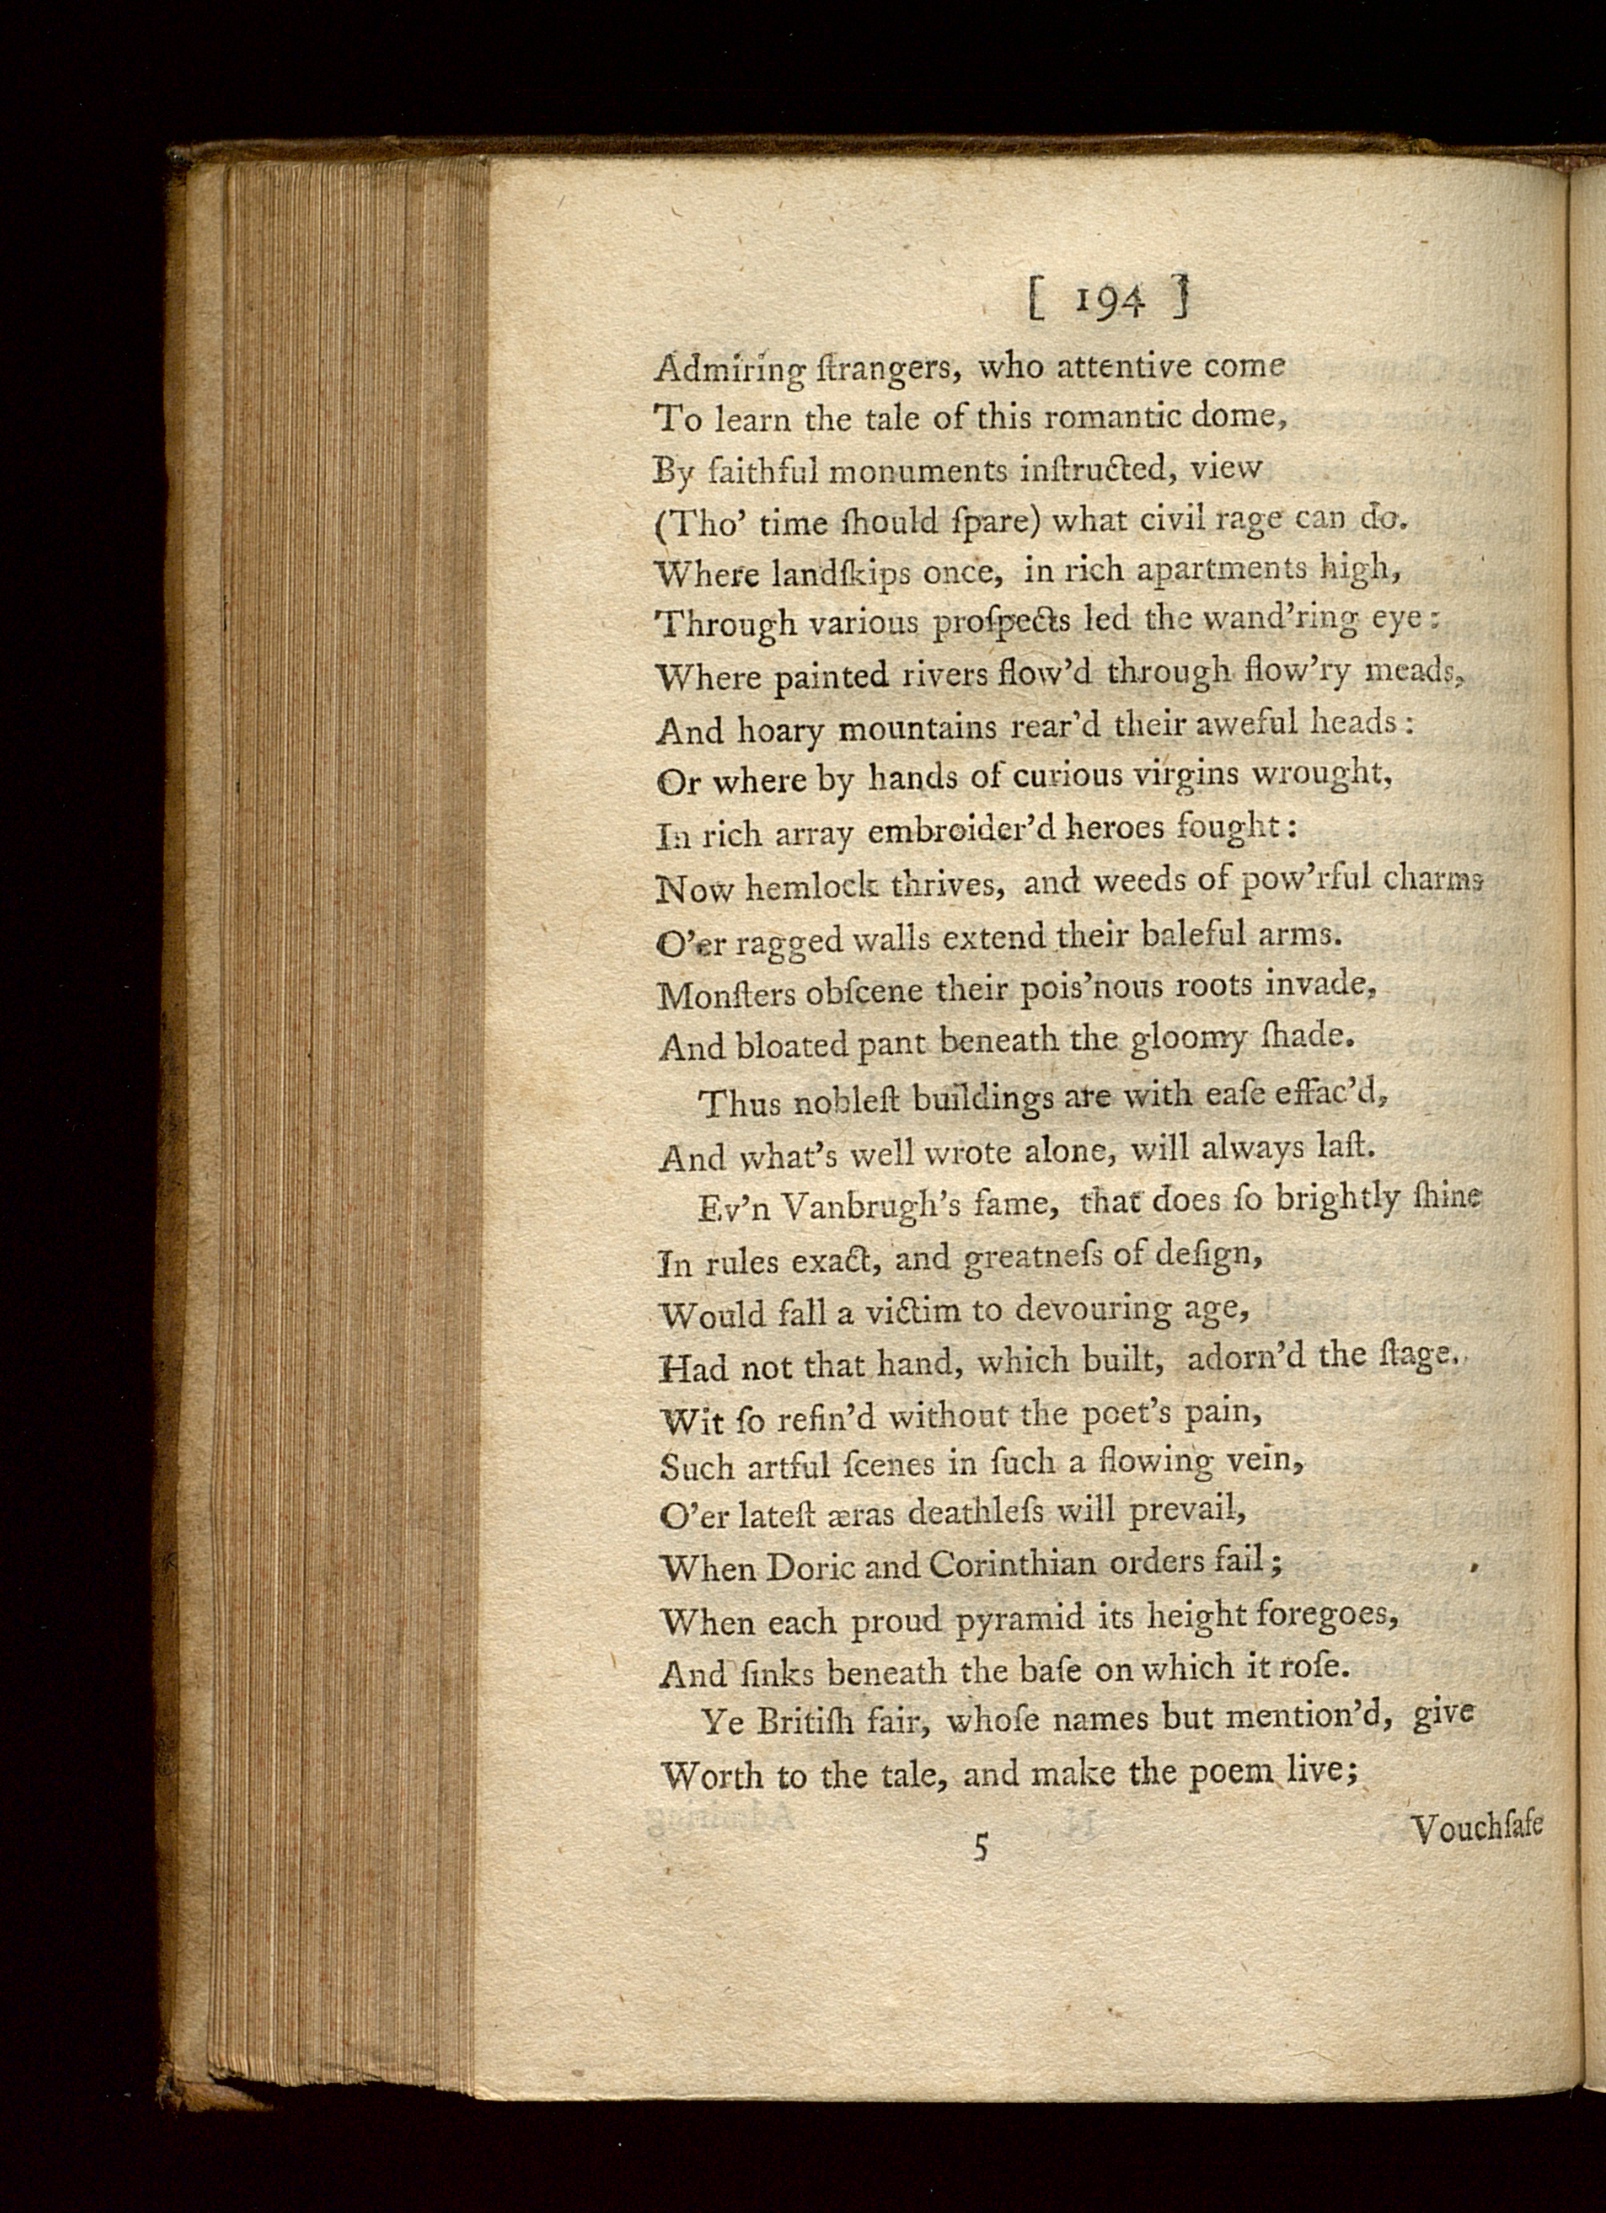 [ 194 ]
Admiring ſtrangers, who attentive come
To learn the tale of this romantic dome,
By faithful monuments inſtructed, view
(Tho' time ſhould ſpare) what civil rage can do.
Where landſkips once, in rich apartments high,
Through various proſpects led the wand'ring eye:
Where painted rivers flow'd through flow'ry meads,
And hoary mountains rear'd their aweful heads:
Or where by hands of curious virgins wrought,
In rich array embroider'd heroes fought:
Now hemlock thrives, and weeds of pow'rful charms
O'er ragged walls extend their baleful arms.
Monſters obſcene their pois'nous roots invade,
And bloated pant beneath the gloomy ſhade.
Thus nobleſt buildings are with eaſe effac'd,
And what's well wrote alone, will always laſt.
Ev'n Vanbrugh's fame, that does ſo brightly ſhine
In rules exact, and greatneſs of deſign,
Would fall a victim to devouring age,
Had not that hand, which built, adorn'd the ſtage.
Wit ſo refin'd without the poet's pain,
Such artful ſcenes in ſuch a flowing vein,
O'er lateſt æras deathleſs will prevail,
When Doric and Corinthian orders fail;
When each proud pyramid its height foregoes,
And ſinks beneath the baſe on which it roſe.
Ye Britiſh fair, whoſe names but mention'd, give
Worth to the tale, and make the poem live;
5
Vouchſafe